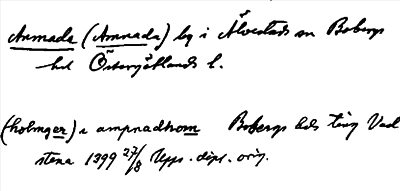 Armada (Amnada) by i Älvestads sn Bobergs
hd Östergötlands l.
(holmger) i ampnadhom Bobergs hds ting Vad
stena 1399 27/8 Upps. dipl. orig.